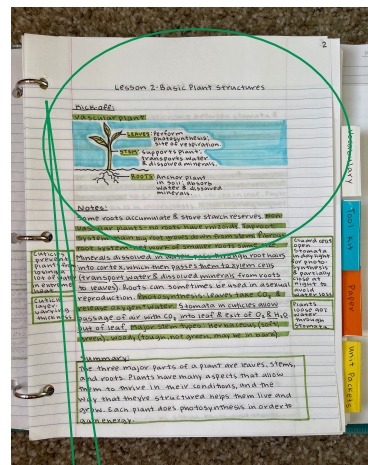 2
Lesson 2-Basic Plant Structures
Kick-off:
Vascular plant
LEAVES: Perform
photosynthesis;
site of respiration.
STEM: Supports plant;
transports water
& dissolved minerals.
ROOTS: Anchor plant
in soil; absorb
water & dissolved
minerals.
Notes:
Some roots accumulate & store starch reserves. Non
vascular plants no roots have rhizoids. Taproot
Minerals dissolved in water pass through root hairs
into cortex, which then passes them to xylem cells
(transport water & dissolved minerals from roots
to leaves). Roots can sometimes be used in asexual
reproduction. Photosynthesis: leaves take CO2 &
release O2 and water. Stomata in cuticles allow
passage of air with CO2 into leaf & exit of O2 & H2O
out of leaf. Major stem types: Herbaceous (soft,
green), woody (tough, not green, may be in bark)
Cuticle
prevent
plant
losing a
lot of water
in extreme
heat
Cuticle
layer
varying
thickness.
Guard cells
open
stomata
in daylight
for photo-
synthesis
& partially
close at
night to
avoid
water loss
Plants
loose 90%
water
through
stomata
Summary:
The three major parts of a plant are leaves, stems,
and roots. Plants have many aspects that allow
them to thrive in their conditions, and the
way that they're structured helps them live and
grow. Each plant does photosynthesis in order to
gain energy.
Vocabulary
Tool Kit
Paper
Unit Packets